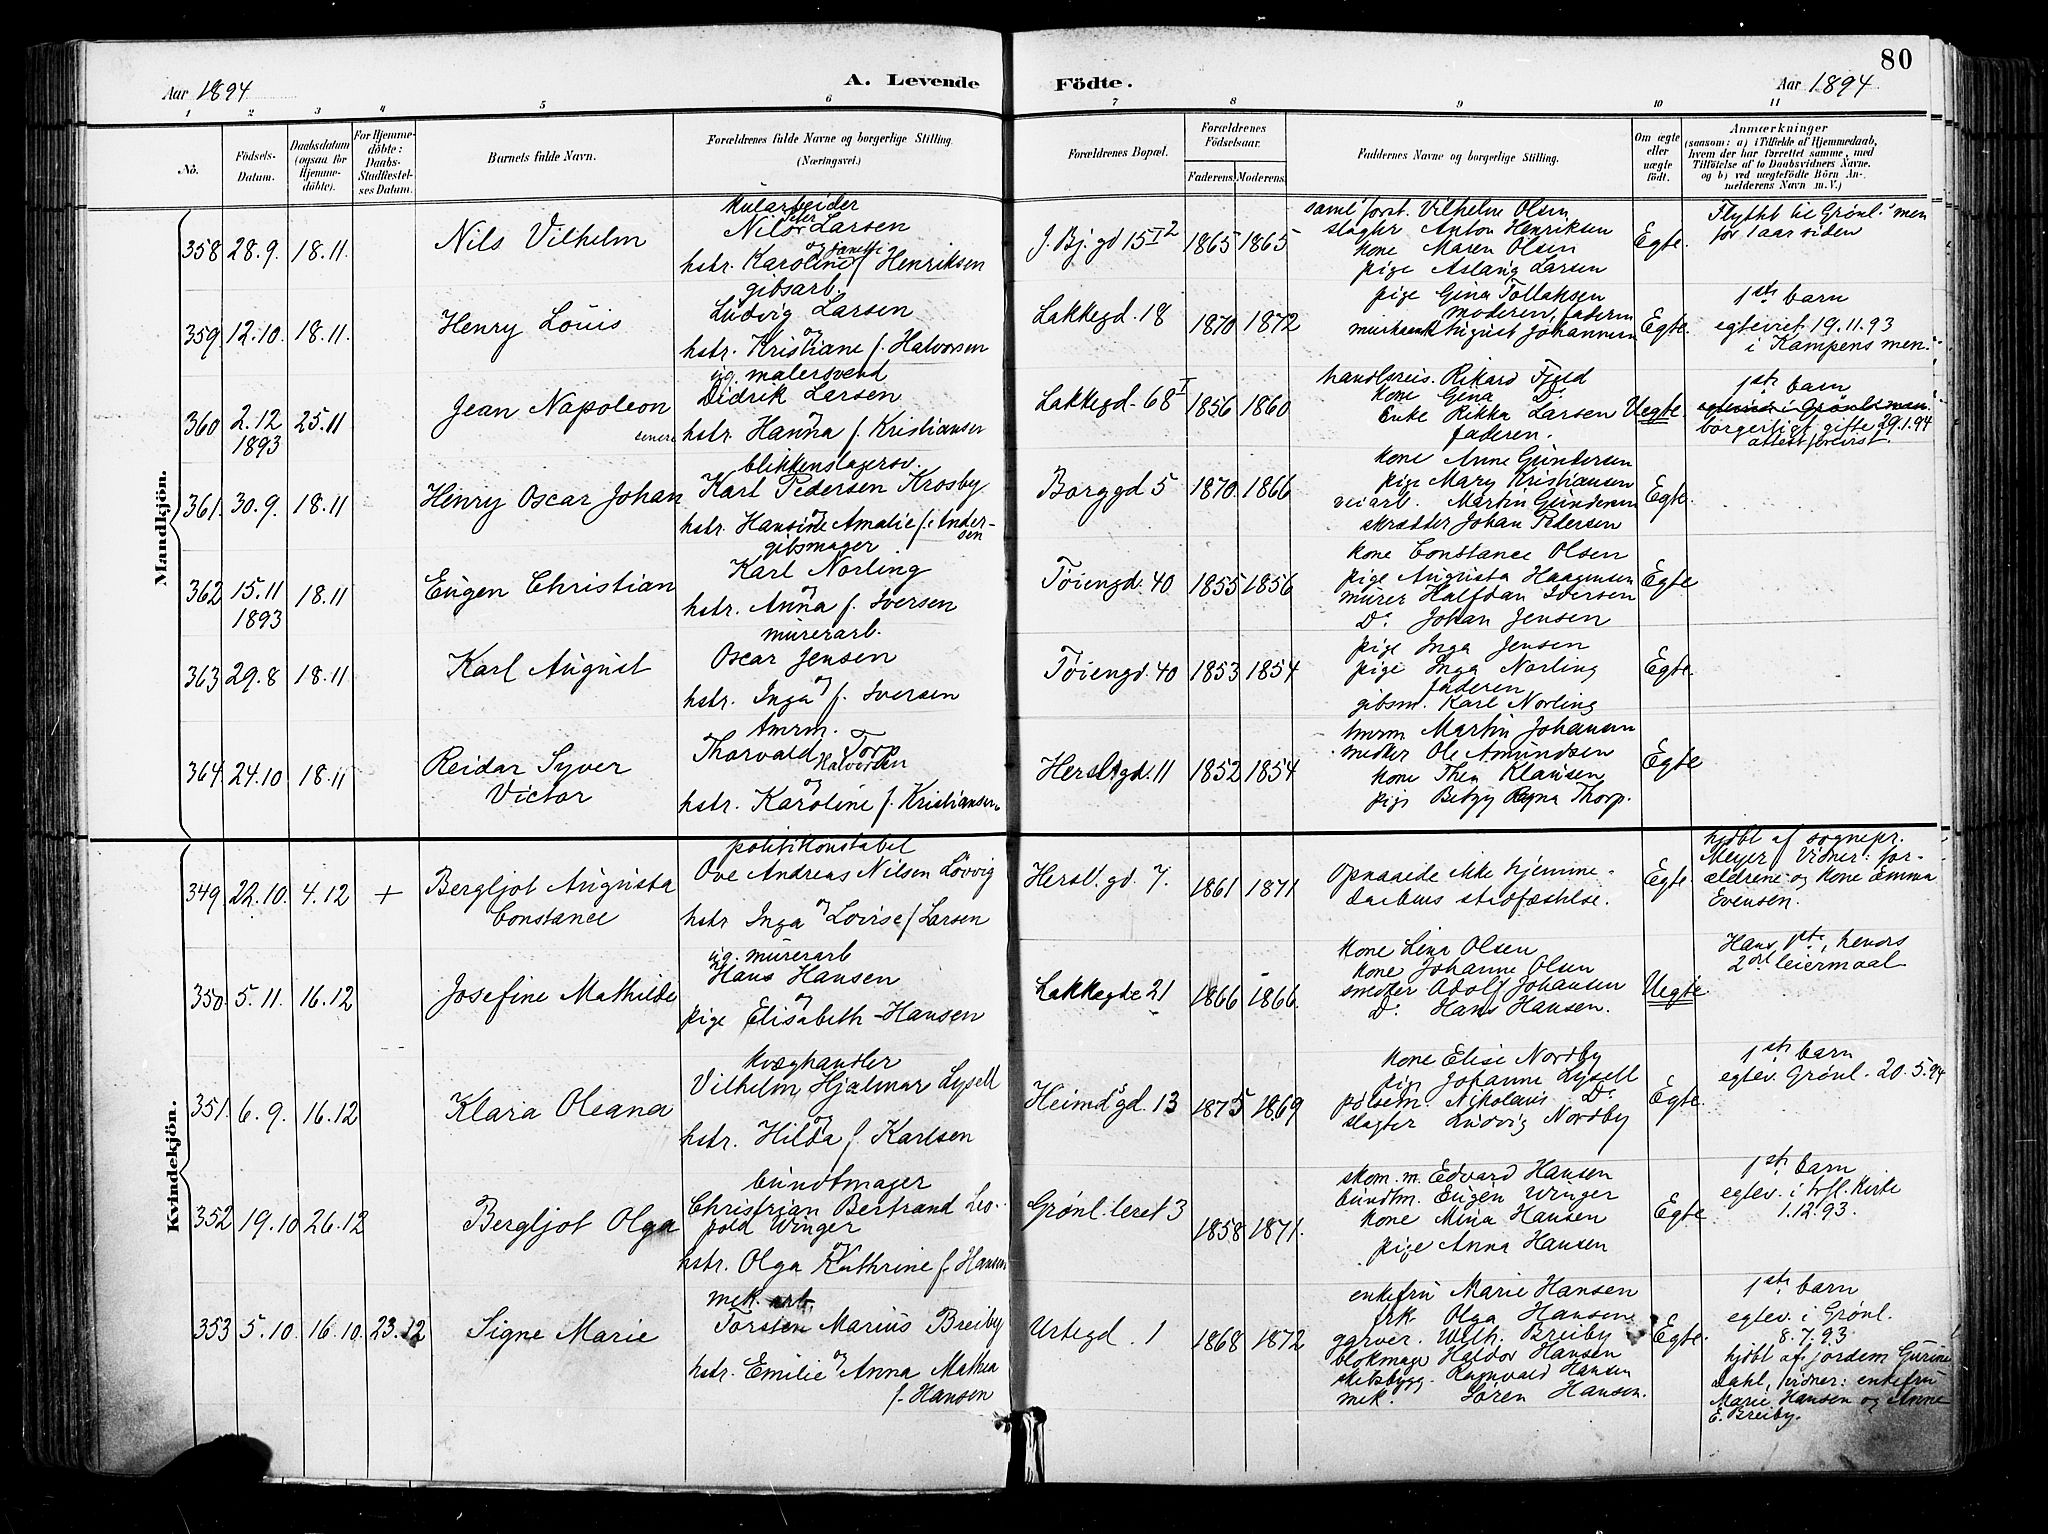 80
Aar 1894
A. Levende Födte.
Aar 1894
1 2 3 4 5 6 7 8 9 10 11
No.
Födsels-Datum.
Daabsdatum (ogsaa for Hjemme-döbte).
For Hjemme-döbte: Daabs-Stadfæstel-ses Datum.
Barnets fulde Navn.
Forældrenes fulde Navne og borgerlige Stilling. (Næringsvei.)
Forældrenes Bopæl.
Forældrenes Födselsaar.
Faderens. Moderens.
Faddernes Navne og borgerlige Stilling.
Om ægte eller uægte födt.
Anmærkninger
(saasom: a) i Tilfælde af Hjemmedaab,
hvem der har forrettet samme, med
Tilföielse af to Daabsvidners Navne.
og b) ved uægtefödte Börn An-
melderens Navn m. V.)
Mandkjön.
358 28.9. 18.11. Nils Vilhelm
Kularbeider
Nils Peter Larsen
og
hstr. Karoline Hanetti f. Henriksen
J. Bj. gd 15 I 2 1865 1865
saml forst. Vilhelm Olsen
slagter Anton Henriksen
kone Maren Olsen
pige Aslaug Larsen
Egte.
Flyttet til Grönl. men
for 1 aar siden
359 12.10. 18.11. Henry Louis
gibsarb.
Ludvig Larsen
og
hstr. Kristiane f. Halvorsen
Lakkegd. 18 1870 1872
pige Gina Tollaksen
moderen, faderen
August Johannesen
Egte.
1ste barn
egteviet 19.11.93
i Kampens men.
360 2.12 1893 25.11 Jean Napoleon
ug. malersvend
Didrik Larsen
senere hstr. Hanna f. Kristiansen
Lakkegd. 68 I 1856 1860
handelsreis. Rikard Fjeld
kone Gina Do
Enke Rikka Larsen
faderen.
Uegte.
1ste barn
egteviet i Grönl. men.
borgerligt gifte 29.1.94
attest forevist.
361. 30.9. 18.11 Henry Oscar Johan
blikkenslagersv.
Karl Pedersen Krosby
og
hstr. Hansine Amalie f. Ander-
sen
Borggd 5 1870. 1866
kone Anne Gundersen
pige Mary Kristiansen
veiarb. Martin Gundersen
skrædder Johan Pedersen
Egte
362 15.11 1893 18.11 Eugen Christian
gibsmager
Karl Norling
og
hstr. Anna f. Iversen
Töiengd. 40 1855 1856
kone Constance Olsen
pige Augusta Haagensen
murer Halfdan Iversen
Do Johan Jensen
Egte
363 29.8 18.11. Karl August
murerarb.
Oscar Jensen
og
hstr. Inga f. Iversen
Töiengd. 40 1853 1854
pige Inga Jensen
pige Inga Norling
faderen
gibsm. Karl Norling
Egte.
364 24.10 18.11 Reidar Syver Victor
tmrm.
Thorvald Halvorsen Torp
og
hstr. Karoline f. Kristiansen
Herslbgd. 11 1852 1854
tmrm Martin Johansen
snedker Ole Amundsen
kone Thea Klausen
pige Betzy Ragna Thorp.
Egte
Kvindekjön.
349 22.10. 4.12 + Bergljot Augusta Constance
politikonstabel
Ove Andreas Nilsen Lövvig
og
hstr Inga Lovise f. Larsen
Hersl. gd. 7. 1861 1871
Opnaaede ikke hjemme-
daabens stadfæstelse.
Egte
hjdöbt af sognepr.
Meyer Vidner: for-
ældrene og kone Emma
Evensen.
350 5.11. 16.12 Josefine Mathilde
ug. murerarb
Hans Hansen
og
pige Elisabeth Hansen
Lakkegde 21 1866 1866
kone Lina Olsen
kone Johanne Olsen
snedker Adolf Johansen
Do Hans Hansen.
Uegte
Hans 1ste, hendes
2det leiermaal
351. 6.9. 16.12 Klara Oleana
kvæghandler
Vilhelm Hjalmar Lysell
og
hstr. Hilda f. Karlsen
Heimdgd. 13 1875 1869
kone Elise Nordby
pige Johanne Lysell
pölsem. Nikolaus Do
slagter Ludvig Nordby
Egte
1ste barn
egtev. Grönl. 20.5.94
352 19.10 26.12 Bergljot Olga
bundtmager
Christian Bertrand Leo-
pold Winger
og
hstr. Olga Kathrine f. Hansen
Grönl. leret 3 1858 1871.
skom. m. Edvard Hansen
bundtm. Eugen Winger
kone Mina Hansen
pige Anna Hansen
Egte
1ste barn
egtev. i trfl. Kirke
1.12.93.
353 5.10. 16.10. 23.12 Signe Marie
mek. arb.
Torsten Marius Breiby
og
hstr. Emilie Anna Mathea
f. Hansen
Urtegd. 1 1868 1872
enkefru Marie Hansen
frk. Olga Hansen
garver. Wilh. Breiby
blokmag. Haldor Hansen
skibsbygg. Ragnvald Hansen
mek. Sören Hansen.
Egte.
1ste barn
egtev. i Grönl.
8.7.93
hjdöbt af jordem Gurine
Dahl, vidner: enkefru
Marie Hansen og Anne
E. Breiby.